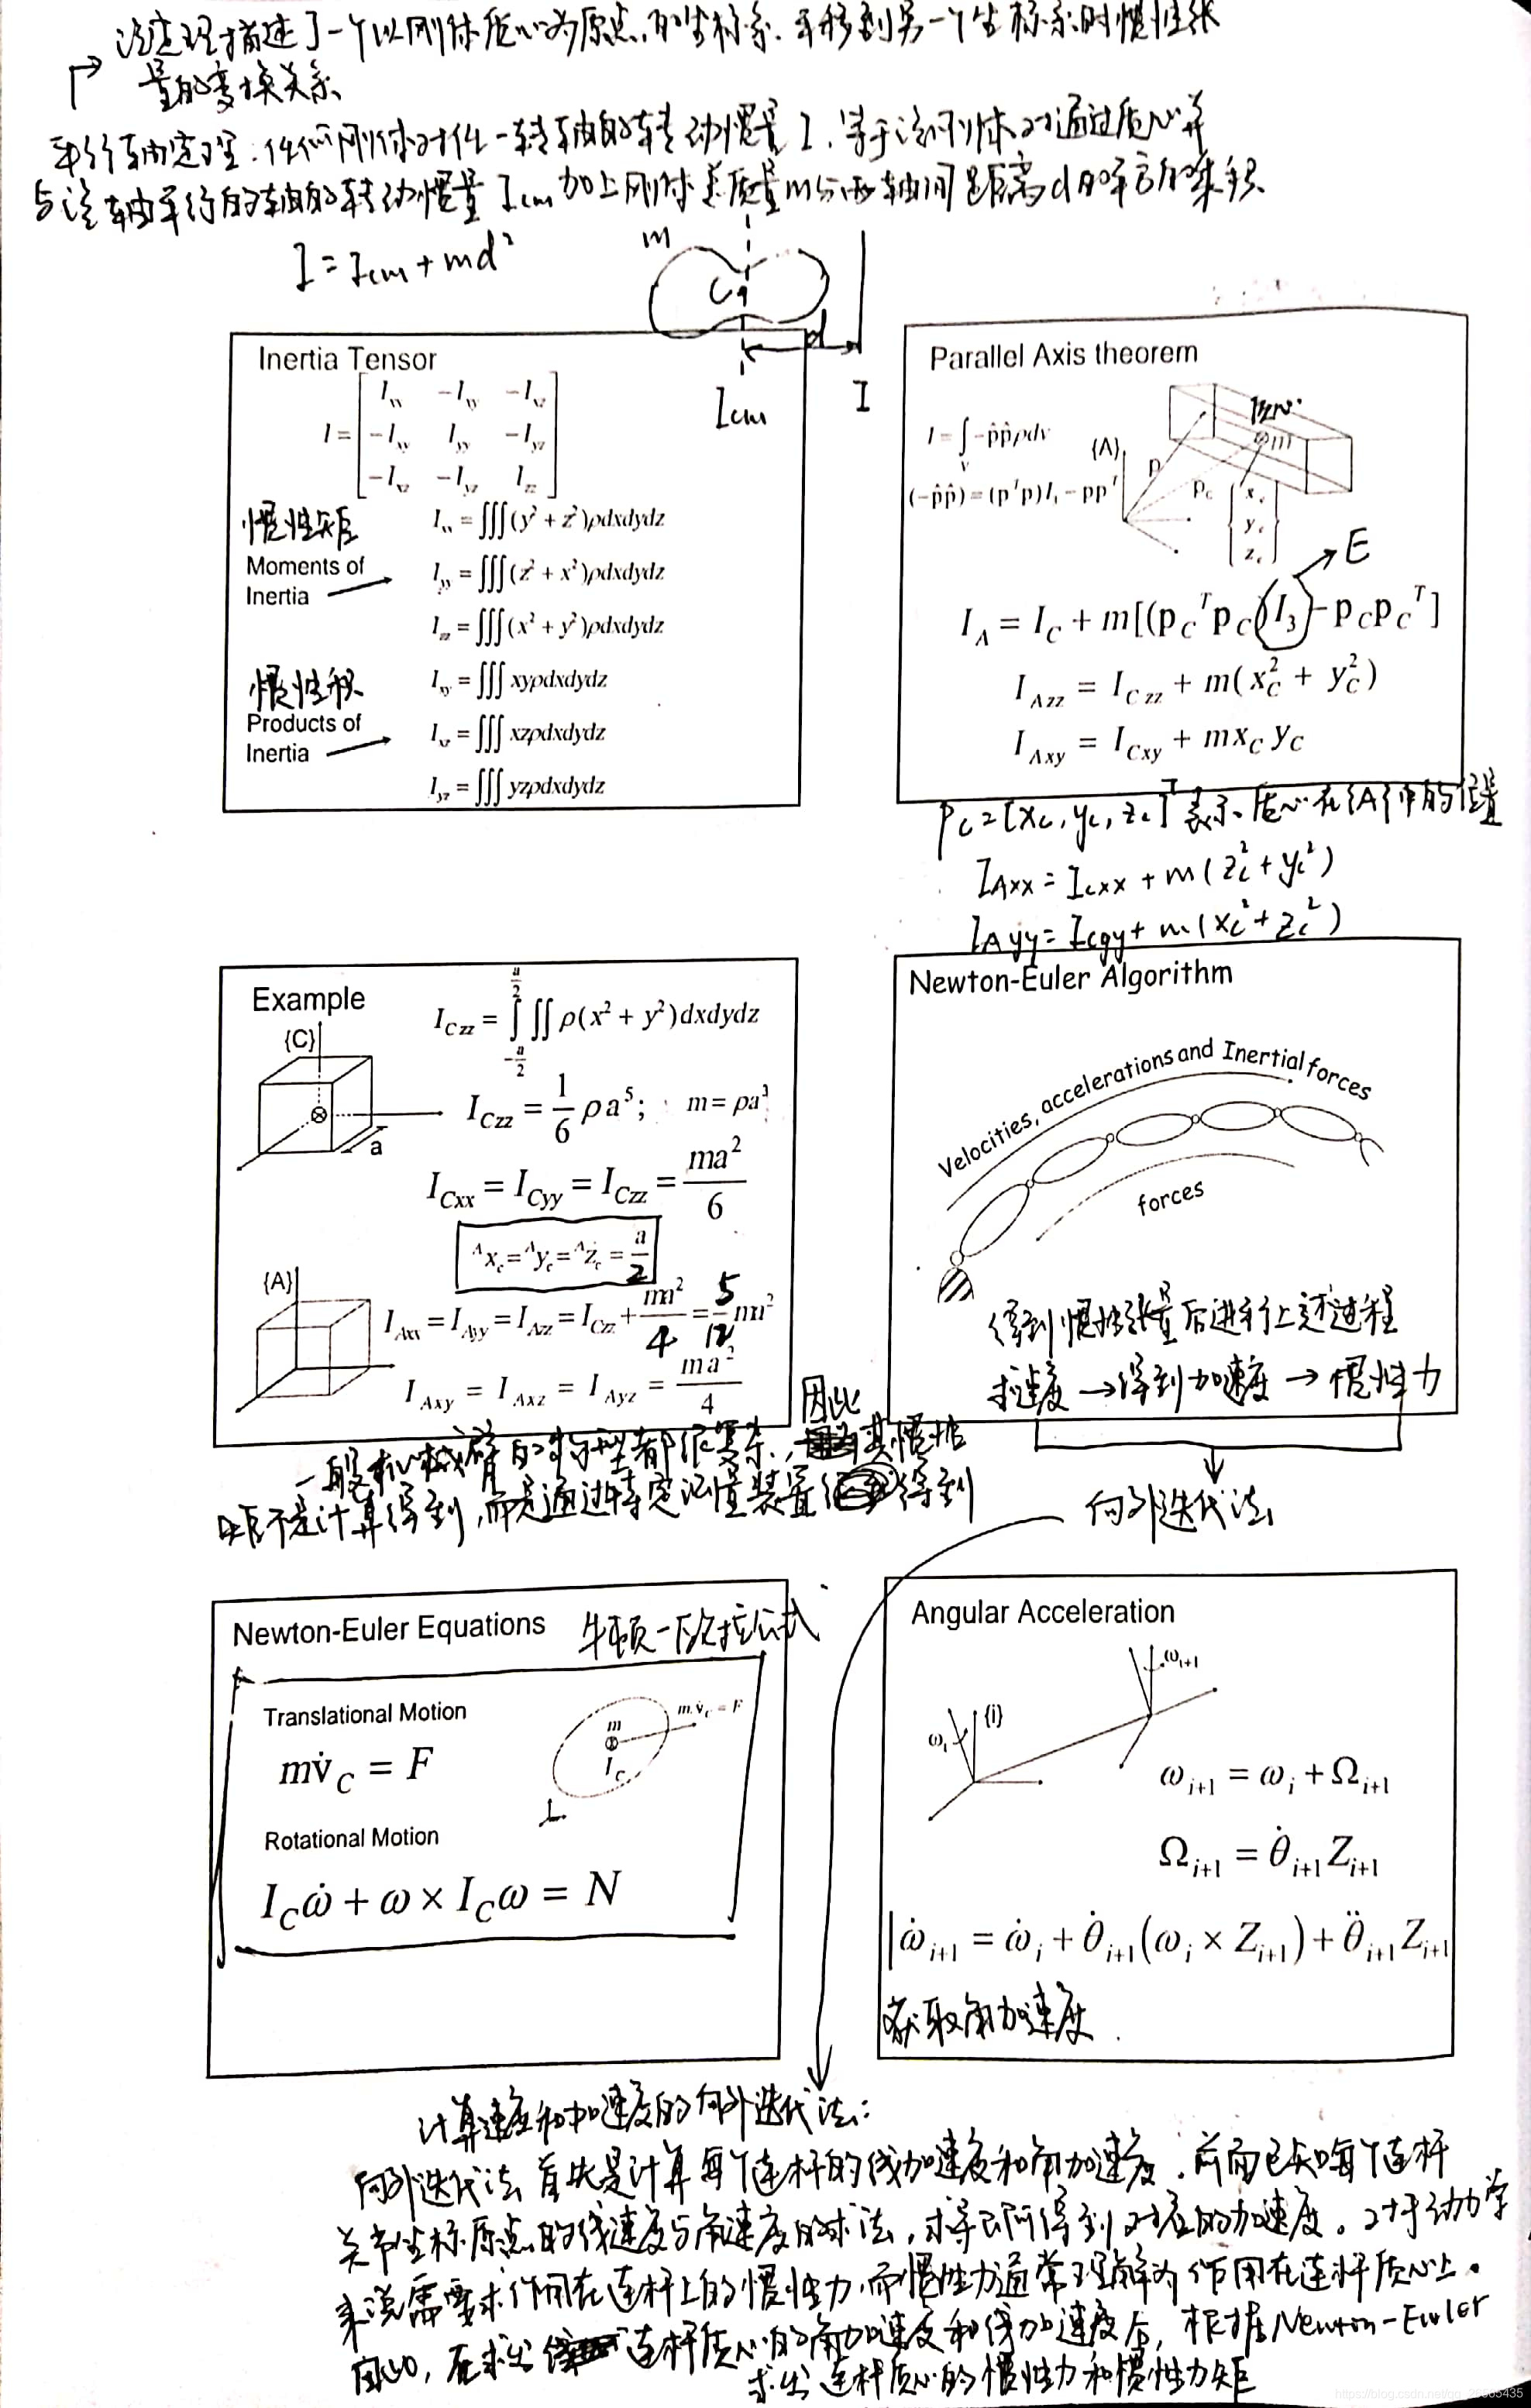 该定理描述了一个以刚体质心为原点的坐标系平移到另一个坐标系时惯性张
量的变换关系
平行轴定理:任何刚体对任一转轴的转动惯量 I,等于该刚体对通过质心并
与该轴平行的轴的转动惯量 Icm 加上刚体总质量m与两轴间距离d的平方的乘积
I = Icm + md²
m
C
d
Icm
I
Inertia Tensor
I = [Ixx -Ixy -Ixz
-Ixy Iyy -Iyz
-Ixz -Iyz Izz]
惯性矩
Moments of
Inertia
Ixx = ∭(y² + z²)ρdxdydz
Iyy = ∭(z² + x²)ρdxdydz
Izz = ∭(x² + y²)ρdxdydz
惯性积
Products of
Inertia
Ixy = ∭ xyρdxdydz
Ixz = ∭ xzρdxdydz
Iyz = ∭ yzρdxdydz
Parallel Axis theorem
I = ∫v -p̂p̂ρdv
(-p̂p̂) = (pᵀp)I₃ - ppᵀ
{A}
p
pc
m
xc
yc
zc
E
I_A = I_C + m[(p_Cᵀp_C)I₃ - p_Cp_Cᵀ]
I_Azz = I_Czz + m(x_C² + y_C²)
I_Axy = I_Cxy + mx_C y_C
Pc = [xc, yc, zc]ᵀ 表示质心在{A}中的位置
I_Axx = I_cxx + m(zc² + yc²)
I_Ayy = I_cyy + m(xc² + zc²)
Example
{C}
a
I_Czz = ∫_{-a/2}^{a/2} ∬ ρ(x² + y²)dxdydz
I_Czz = 1/6 ρa⁵; m = ρa³
I_Cxx = I_Cyy = I_Czz = ma²/6
ᴬxc = ᴬyc = ᴬzc = a/2
{A}
I_Axx = I_Ayy = I_Azz = I_Czz + ma²/4 = 5/12 ma²
I_Axy = I_Axz = I_Ayz = ma²/4
一般机械臂的外型都很复杂,因此其惯性
矩不是计算得到,而是通过特定测量装置得到
Newton-Euler Algorithm
Velocities, accelerations and Inertial forces
forces
得到惯性张量后进行上述过程
求速度 → 得到加速度 → 惯性力
向外迭代法
Newton-Euler Equations 牛顿-欧拉公式
Translational Motion
mv̇_C = F
m
I_C
m v̇_C = F
Rotational Motion
I_Cω̇ + ω × I_Cω = N
Angular Acceleration
ω_i
{i}
ω_i+1
ω_i+1 = ω_i + Ω_i+1
Ω_i+1 = θ̇_i+1 Z_i+1
ω̇_i+1 = ω̇_i + θ̇_i+1(ω_i × Z_i+1) + θ̈_i+1 Z_i+1
获取角加速度
计算速度和加速度的向外迭代法:
向外迭代法首先是计算每个连杆的线加速度和角加速度,前面已知每个连杆
关节坐标原点的线速度与角速度的求法,求导即可得到对应的加速度。对于动力学
来说需要求作用在连杆上的惯性力,而惯性力通常理解为作用在连杆质心上。
因此,在求出连杆质心的角加速度和线加速度后,根据Newton-Euler
求出连杆质心的惯性力和惯性力矩